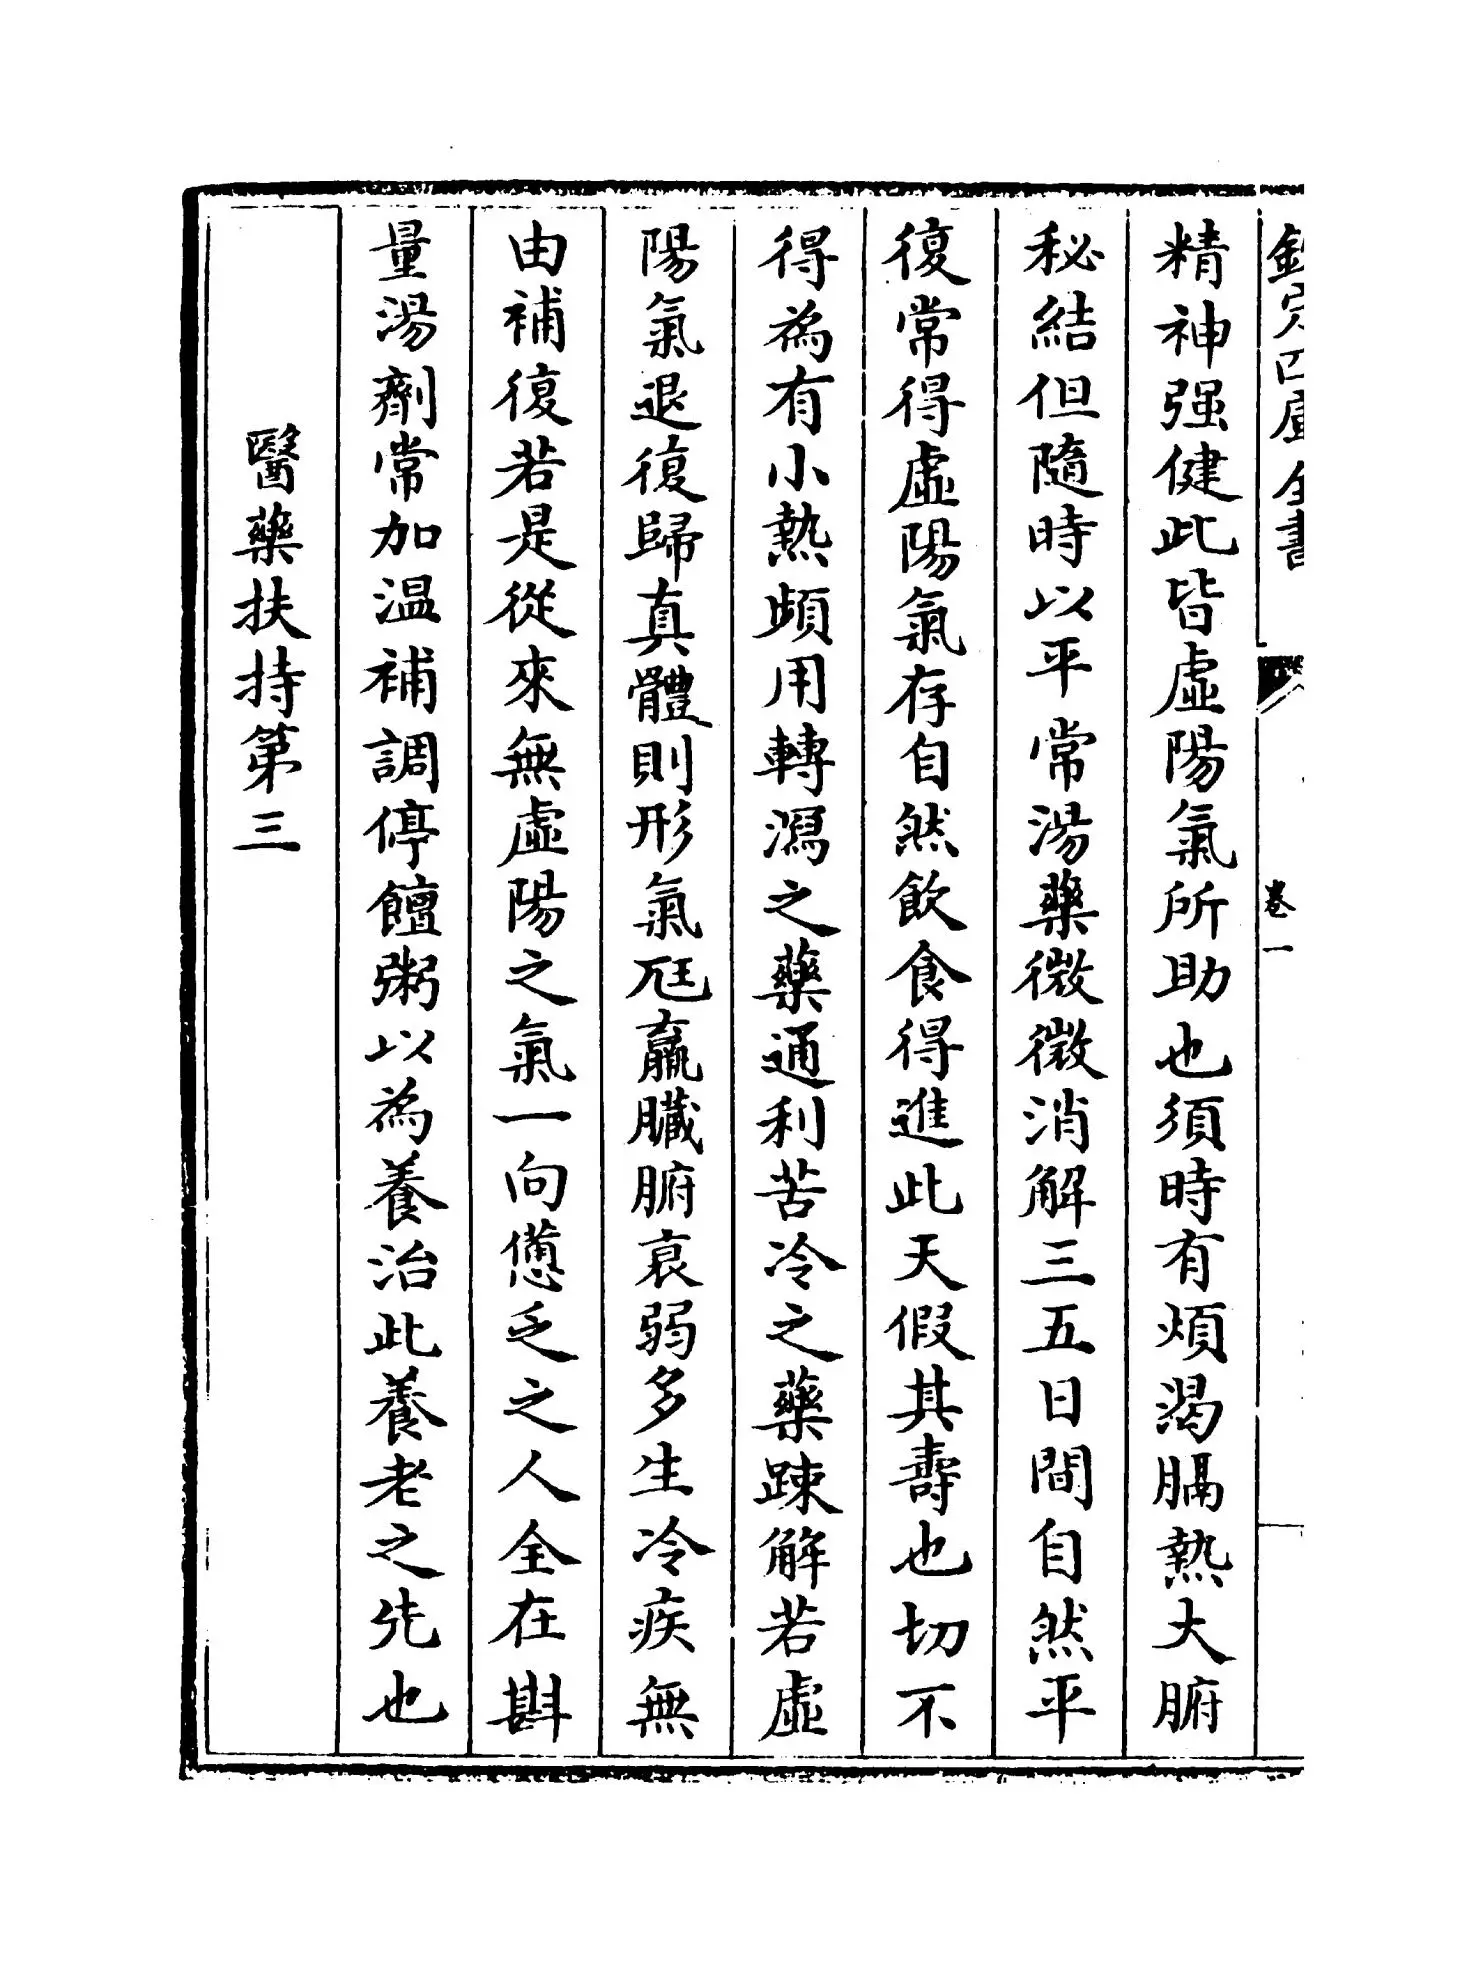 欽定四庫全書
卷一
精神强健此皆虛陽氣所助也須時有煩渴膈熱大腑
秘結但隨時以平常湯藥微微消解三五日間自然平
復常得虛陽氣存自然飲食得進此天假其壽也切不
得為有小熱頻用轉瀉之藥通利苦冷之藥疎解若虛
陽氣退復歸真體則形氣尫羸臟腑衰弱多生冷疾無
由補復若是從來無虛陽之氣一向憊乏之人全在斟
量湯劑常加温補調停饘粥以為養治此養老之先也
醫藥扶持第三